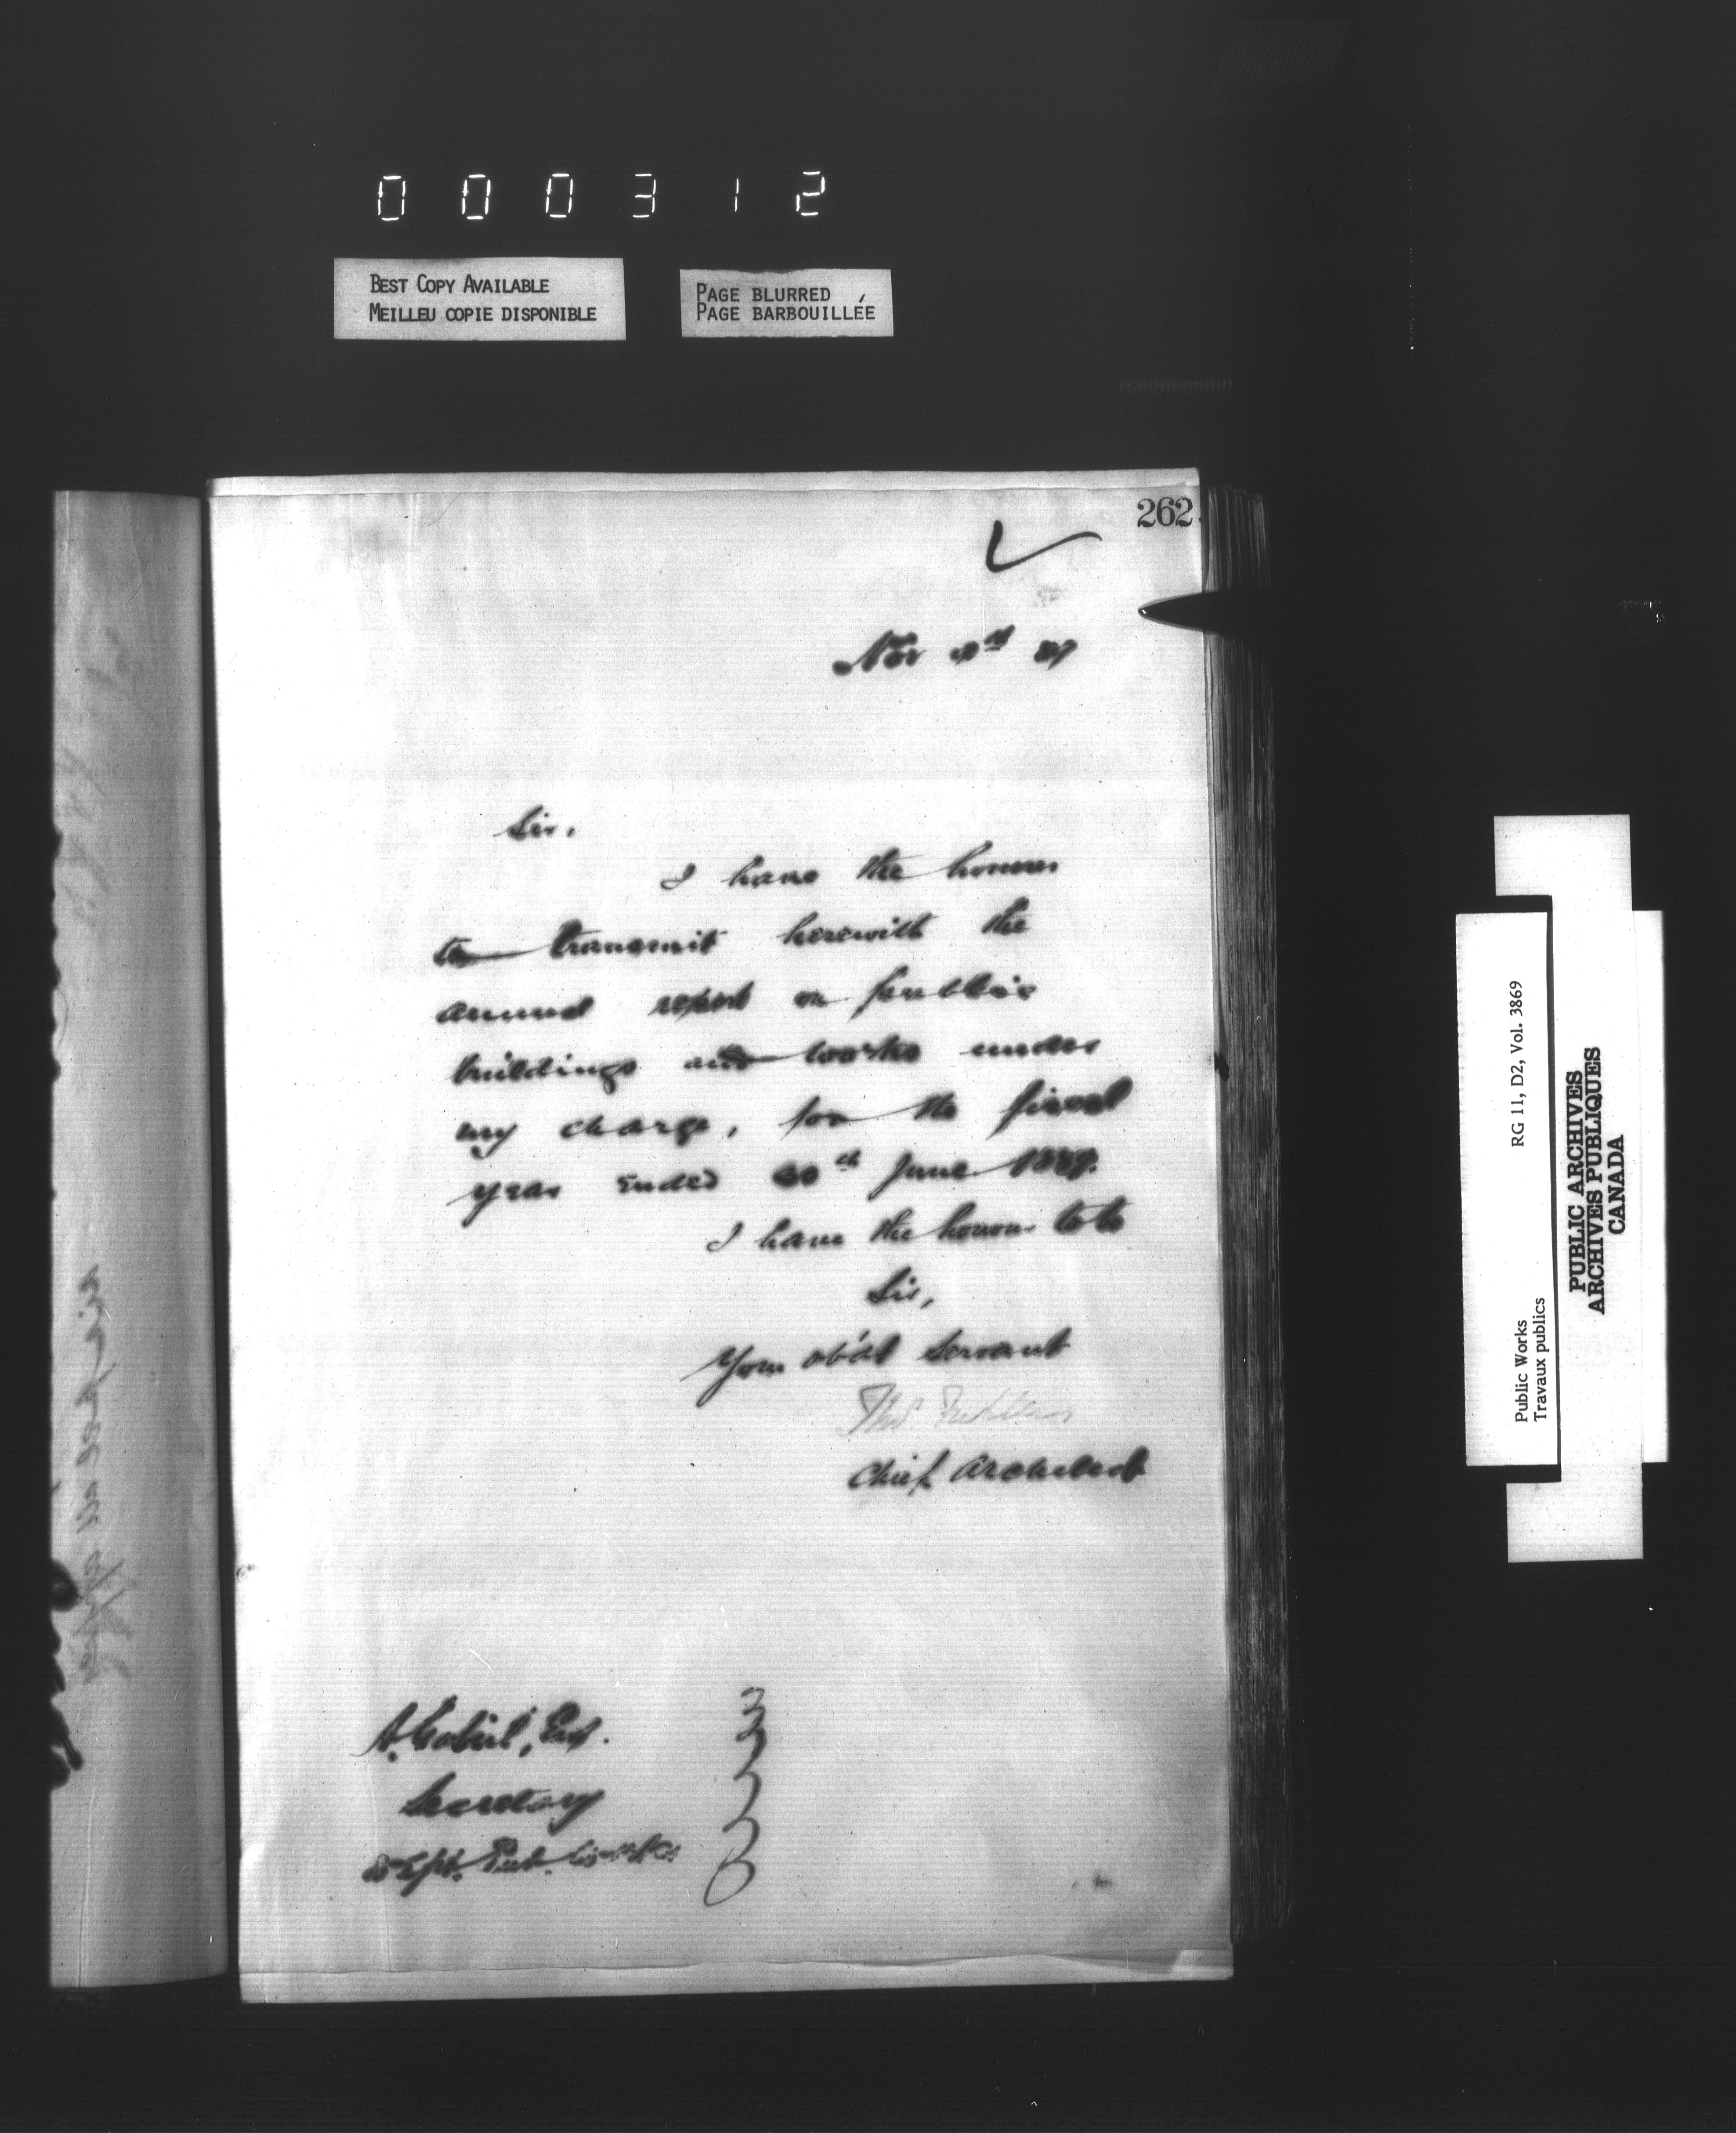 000312
BEST COPY AVAILABLE
MEILLEU COPIE DISPONIBLE
PAGE BLURRED
PAGE BARBOUILLÉE
262
Nov
Sir,
I have the honour
to transmit herewith the
annual report on public
buildings and works under
my charge, for the fiscal
year ended 30th June
I have the honour to be
Sir,
Your ob'dt Servant
Thos Fuller
Chief Architect
A. Gobeil, Esq.
Secretary
Dept. Pub. Works
Public Works
Travaux publics
RG 11, D2, Vol. 3869
PUBLIC ARCHIVES
ARCHIVES PUBLIQUES
CANADA